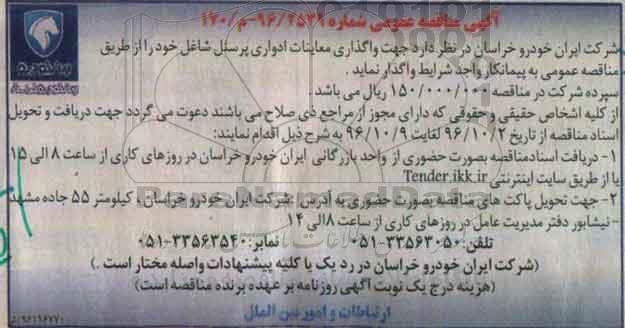 آگهی مناقصه عمومی شماره ۹۶/۲۵۳۹-م/۱۷۰
شرکت ایران خودرو خراسان در نظر دارد جهت واگذاری معاینات ادواری پرسنل شاغل خود را از طریق
مناقصه عمومی به پیمانکار واجد شرایط واگذار نماید .
سپرده شرکت در مناقصه ۱۵۰/۰۰۰/۰۰۰ ریال می باشد .
از کلیه اشخاص حقیقی و حقوقی که دارای مجوز از مراجع ذی صلاح می باشند دعوت می گردد جهت دریافت و تحویل
اسناد مناقصه از تاریخ ۹۶/۱۰/۲ لغایت ۹۶/۱۰/۹ به شرح ذیل اقدام نمایند:
۱- دریافت اسناد مناقصه بصورت حضوری از واحد بازرگانی ایران خودرو خراسان در روزهای کاری از ساعت ۸ الی ۱۵
یا از طریق سایت اینترنتی Tender.ikk.ir
۲- جهت تحویل پاکت های مناقصه بصورت حضوری به آدرس: شرکت ایران خودرو خراسان ، کیلومتر ۵۵ جاده مشهد
- نیشابور دفتر مدیریت عامل در روزهای کاری از ساعت ۸ الی ۱۴
تلفن: ۳۳۵۶۳۰۵۰-۰۵۱ نمابر: ۳۳۵۶۳۵۴۰-۰۵۱
(شرکت ایران خودرو خراسان در رد یک یا کلیه پیشنهادات واصله مختار است .)
(هزینه درج یک نوبت آگهی روزنامه بر عهده برنده مناقصه است)
ارتباطات و امور بین الملل